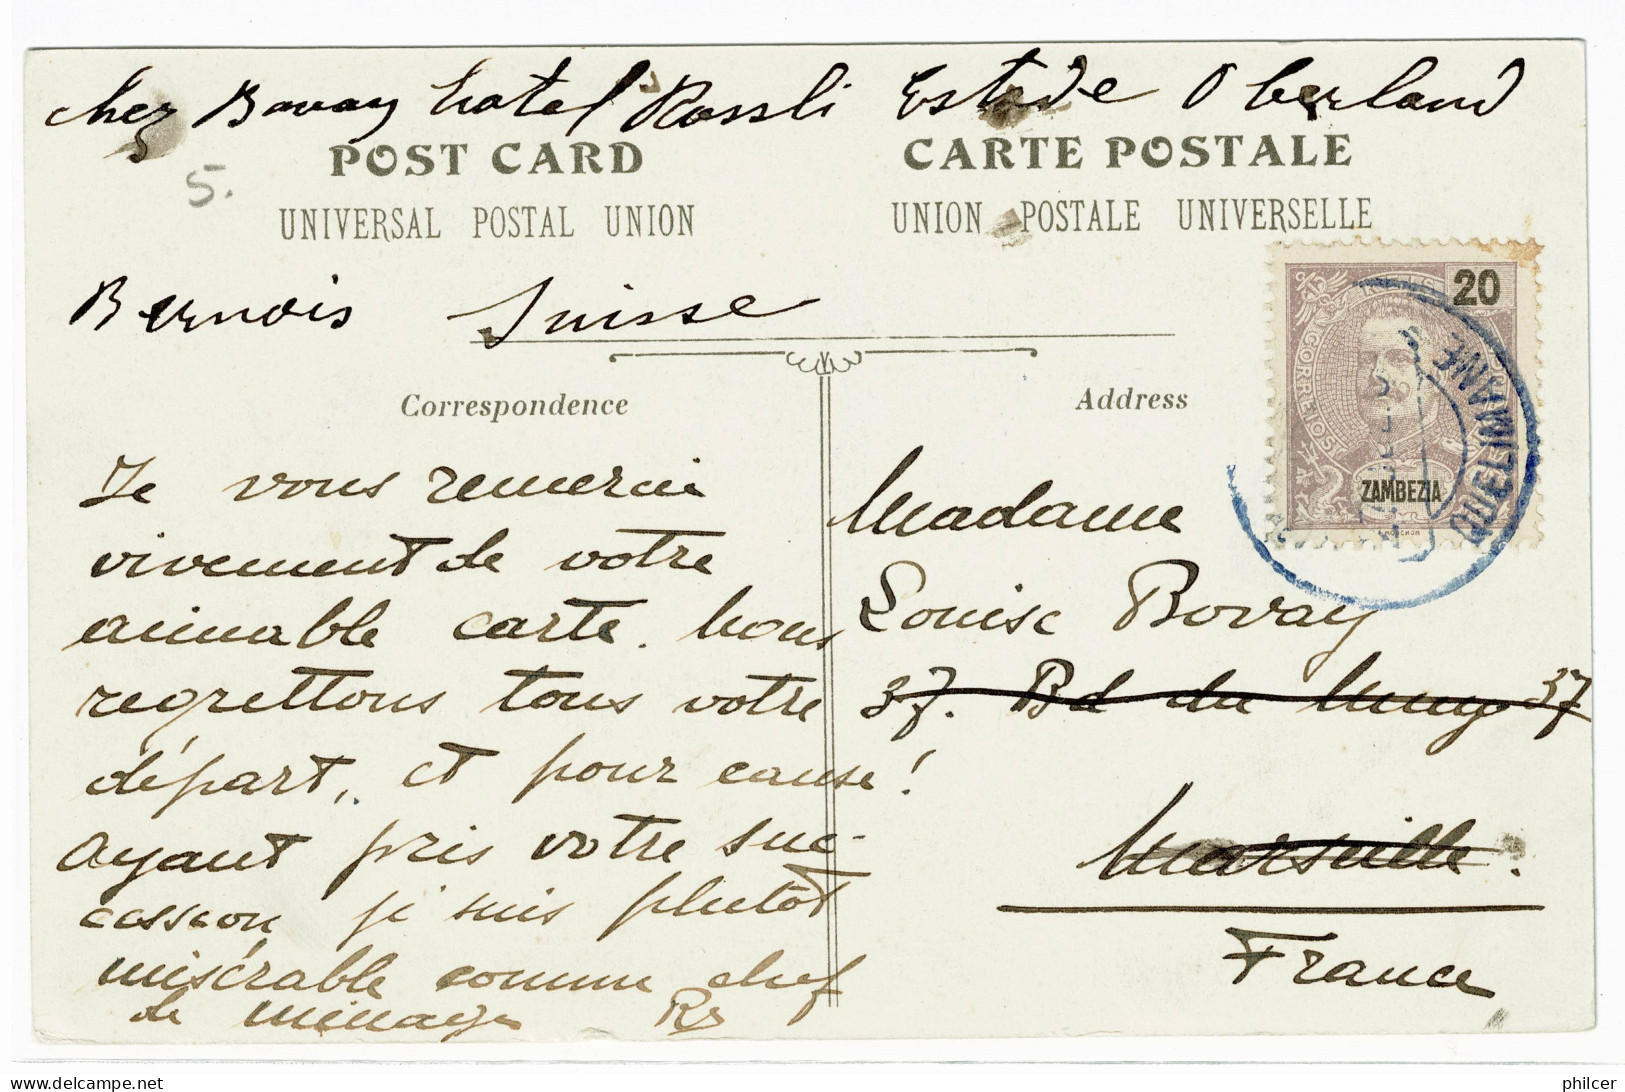 chez Bovay hotel Rossli Estade Oberland
POST CARD
CARTE POSTALE
5.
UNIVERSAL POSTAL UNION
UNION POSTALE UNIVERSELLE
Bernois Suisse
20
CORREIOS
ZAMBEZIA
MOUCHON
QUELIMANE
Correspondence
Address
Je vous remercie
vivement de votre
aimable carte. Nous
regrettons tous votre
départ, et pour cause!
Ayant pris votre suc-
cession je suis plutôt
misérable comme chef
de ménage
Madame
Louise Bovay
37. Bd du Muy 37
Marseille.
France
philcer